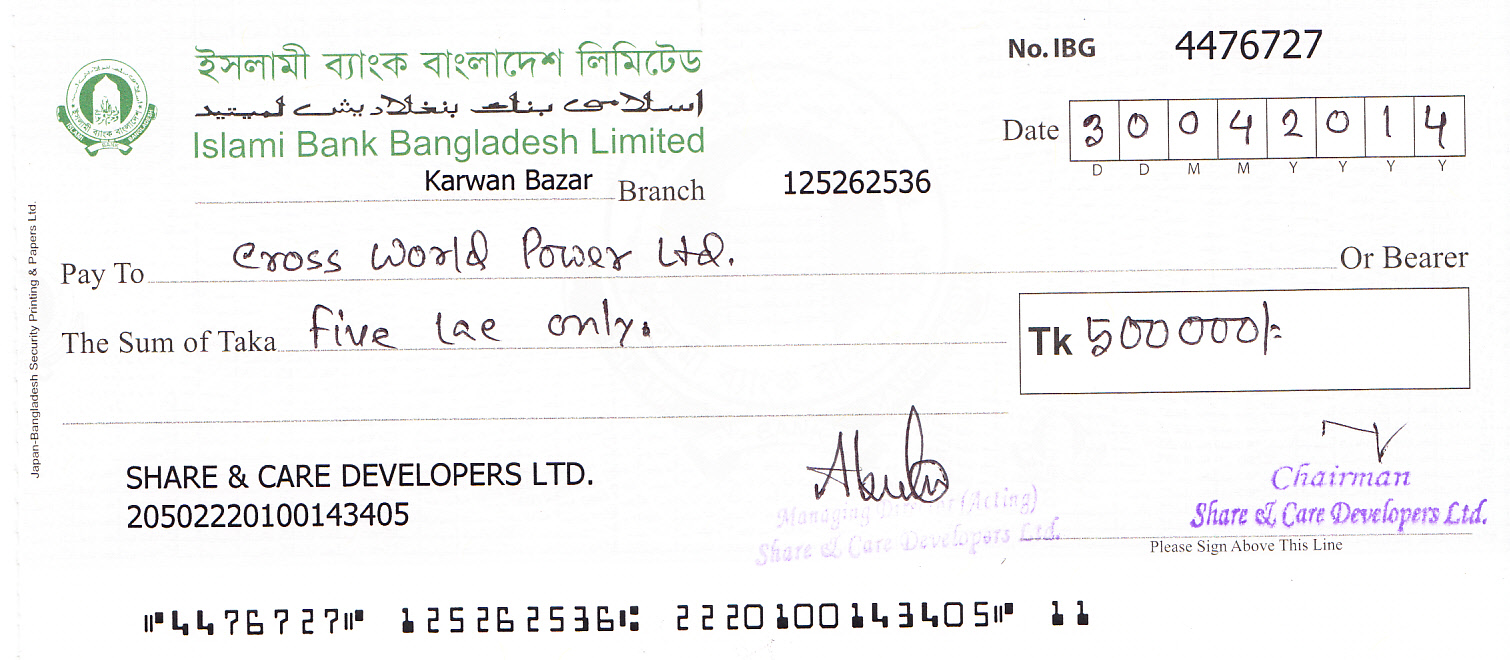 ইসলামী ব্যাংক বাংলাদেশ লিমিটেড
اسلامى بنك بنغلاديش لميتيد
Islami Bank Bangladesh Limited
Karwan Bazar Branch
125262536
No. IBG 4476727
Date 30042014
D D M M Y Y Y Y
Pay To Cross World Power Ltd. Or Bearer
The Sum of Taka five lac only.
Tk 500000/-
SHARE & CARE DEVELOPERS LTD.
20502220100143405
Managing Director (Acting)
Share & Care Developers Ltd.
Chairman
Share & Care Developers Ltd.
Please Sign Above This Line
Japan-Bangladesh Security Printing & Papers Ltd.
⑈4476727⑈ 125262536⑆ 2220100143405⑈ 11